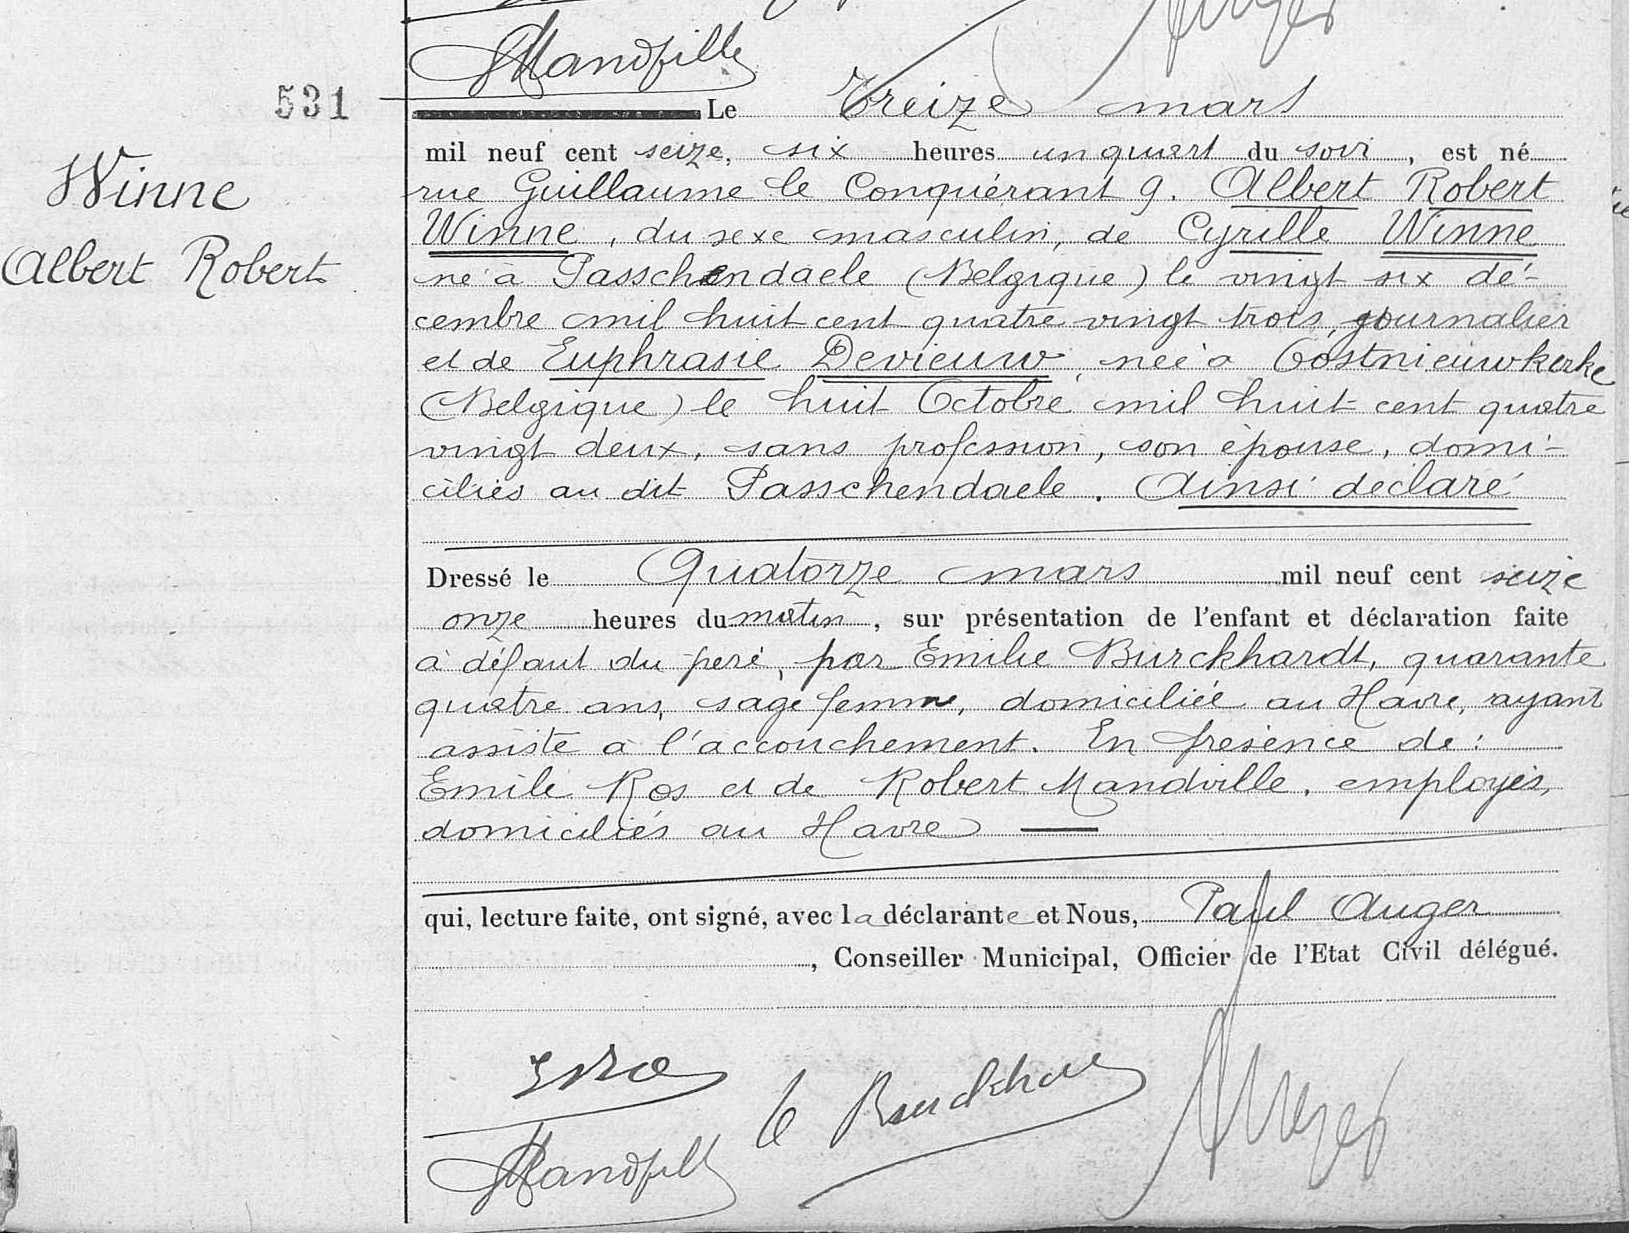 Mandville
Auger
531
Le Treize mars
Winne
Albert Robert
mil neuf cent seize, six heures un quart du soir, est né
rue Guillaume le Conquérant 9. Albert Robert
Winne, du sexe masculin, de Cyrille Winne
né à Passchendaele (Belgique) le vingt six dé-
cembre mil huit cent quatre vingt trois, journalier
et de Euphrasie Devieuw, née à Oostnieuwkerke
(Belgique) le huit Octobre mil huit cent quatre
vingt deux, sans profession, son épouse, domi-
ciliés au dit Passchendaele. Ainsi déclaré
Dressé le Quatorze mars mil neuf cent seize
onze heures du matin, sur présentation de l'enfant et déclaration faite
à défaut du père, par Emilie Burckhardt, quarante
quatre ans, sage femme, domiciliée au Havre, ayant
assisté à l'accouchement. En présence de :
Emile Ros et de Robert Mandville, employés,
domiciliés au Havre
qui, lecture faite, ont signé, avec la déclarante et Nous, Paul Auger
, Conseiller Municipal, Officier de l'Etat Civil délégué.
E Burckhardt
Mandville
Auger